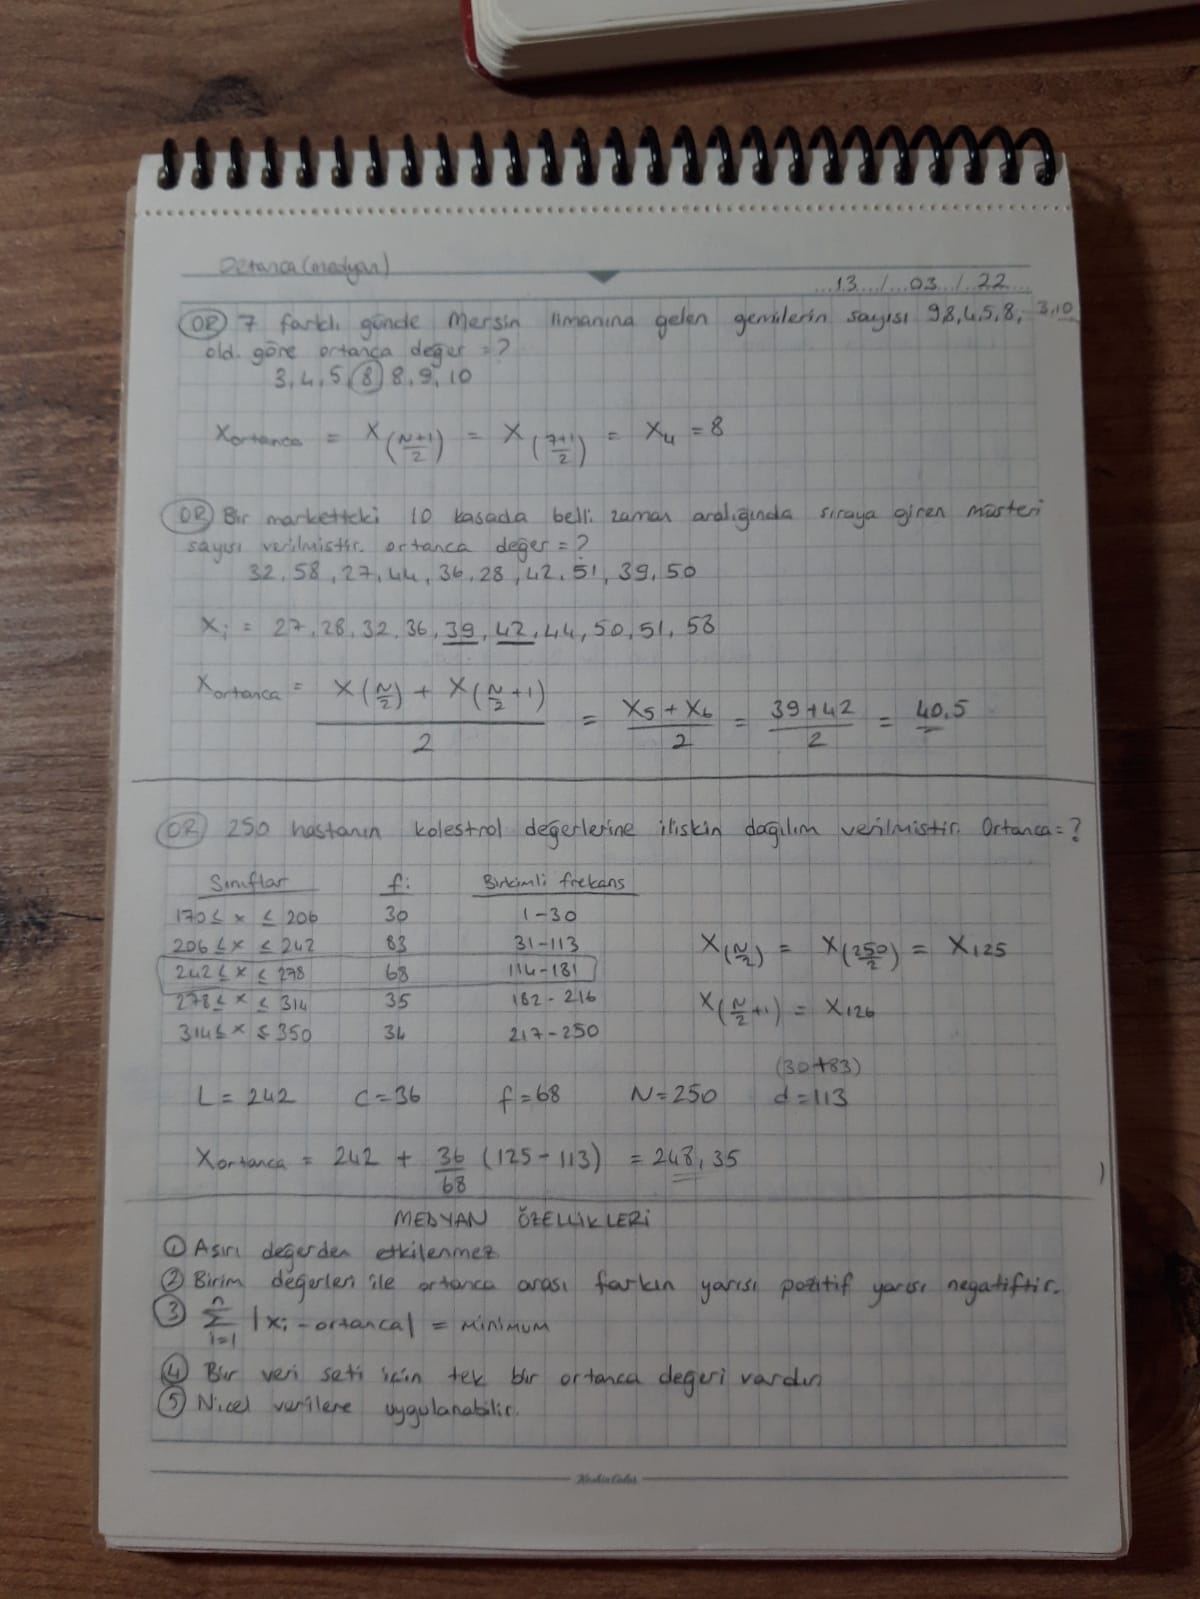 Ortanca (medyan)
13 / 03 / 22
ÖR 7 farklı günde Mersin limanına gelen gemilerin sayısı 9,8,4,5,8, 3,10
old. göre ortanca değer = ?
3, 4, 5, 8, 8, 9, 10
Xortanca = X((N+1)/2) = X((7+1)/2) = X4 = 8
ÖR Bir marketteki 10 kasada belli zaman aralığında sıraya giren müşteri
sayısı verilmiştir. ortanca değer = ?
32, 58, 27, 44, 36, 28, 42, 51, 39, 50
Xi = 27, 28, 32, 36, 39, 42, 44, 50, 51, 58
Xortanca = (X(N/2) + X(N/2 +1)) / 2 = (X5 + X6) / 2 = (39+42) / 2 = 40,5
ÖR 250 hastanın kolestrol değerlerine ilişkin dağılım verilmiştir. Ortanca = ?
Sınıflar fi Birkimli frekans
170 ≤ x ≤ 206 30 1-30
206 ≤ x ≤ 242 83 31-113
242 ≤ x ≤ 278 68 114-181
278 ≤ x ≤ 314 35 182-216
314 ≤ x ≤ 350 34 217-250
X(N/2) = X(250/2) = X125
X(N/2 +1) = X126
(30+83)
L = 242 C = 36 f = 68 N = 250 d = 113
Xortanca = 242 + 36/68 (125 - 113) = 248,35
MEDYAN ÖZELLİKLERİ
① Aşırı değerden etkilenmez
② Birim değerleri ile ortanca arası farkın yarısı pozitif yarısı negatiftir.
③ n Σ i=1 |xi - ortanca| = MİNİMUM
④ Bir veri seti için tek bir ortanca değeri vardır
⑤ Nicel verilere uygulanabilir.
Keskin Color